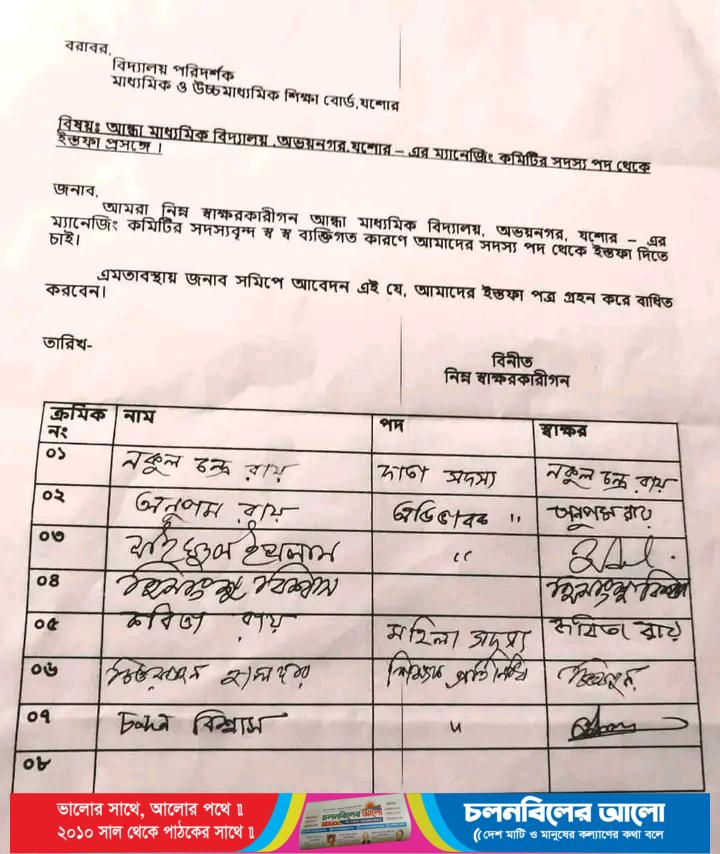 বরাবর,
বিদ্যালয় পরিদর্শক
মাধ্যমিক ও উচ্চমাধ্যমিক শিক্ষা বোর্ড,যশোর
বিষয়ঃ আন্ধা মাধ্যমিক বিদ্যালয় ,অভয়নগর,যশোর – এর ম্যানেজিং কমিটির সদস্য পদ থেকে
ইস্তফা প্রসঙ্গে ।
জনাব,
আমরা নিম্ন স্বাক্ষরকারীগন আন্ধা মাধ্যমিক বিদ্যালয়, অভয়নগর, যশোর – এর
ম্যানেজিং কমিটির সদস্যবৃন্দ স্ব স্ব ব্যক্তিগত কারণে আমাদের সদস্য পদ থেকে ইস্তফা দিতে
চাই।
এমতাবস্থায় জনাব সমিপে আবেদন এই যে, আমাদের ইস্তফা পত্র গ্রহন করে বাধিত
করবেন।
তারিখ-
বিনীত
নিম্ন স্বাক্ষরকারীগন
ক্রমিক নাম পদ স্বাক্ষর
নং
০১ নকুল চন্দ্র রায় দাতা সদস্য নকুল চন্দ্র রায়
০২ অনুপম রায় অভিভাবক " অনুপম রায়
০৩ ইসলাম "
০৪ বিশ্বাস বিশ্বাস
০৫ কবিতা রায় মহিলা সদস্য কবিতা রায়
০৬ হালদার শিক্ষক প্রতিনিধি
০৭ চন্দন বিশ্বাস "
০৮
ভালোর সাথে, আলোর পথে ॥
২০১০ সাল থেকে পাঠকের সাথে ॥
চলনবিলের আলো
চলনবিলের আলো
দেশ মাটি ও মানুষের কল্যাণের কথা বলে